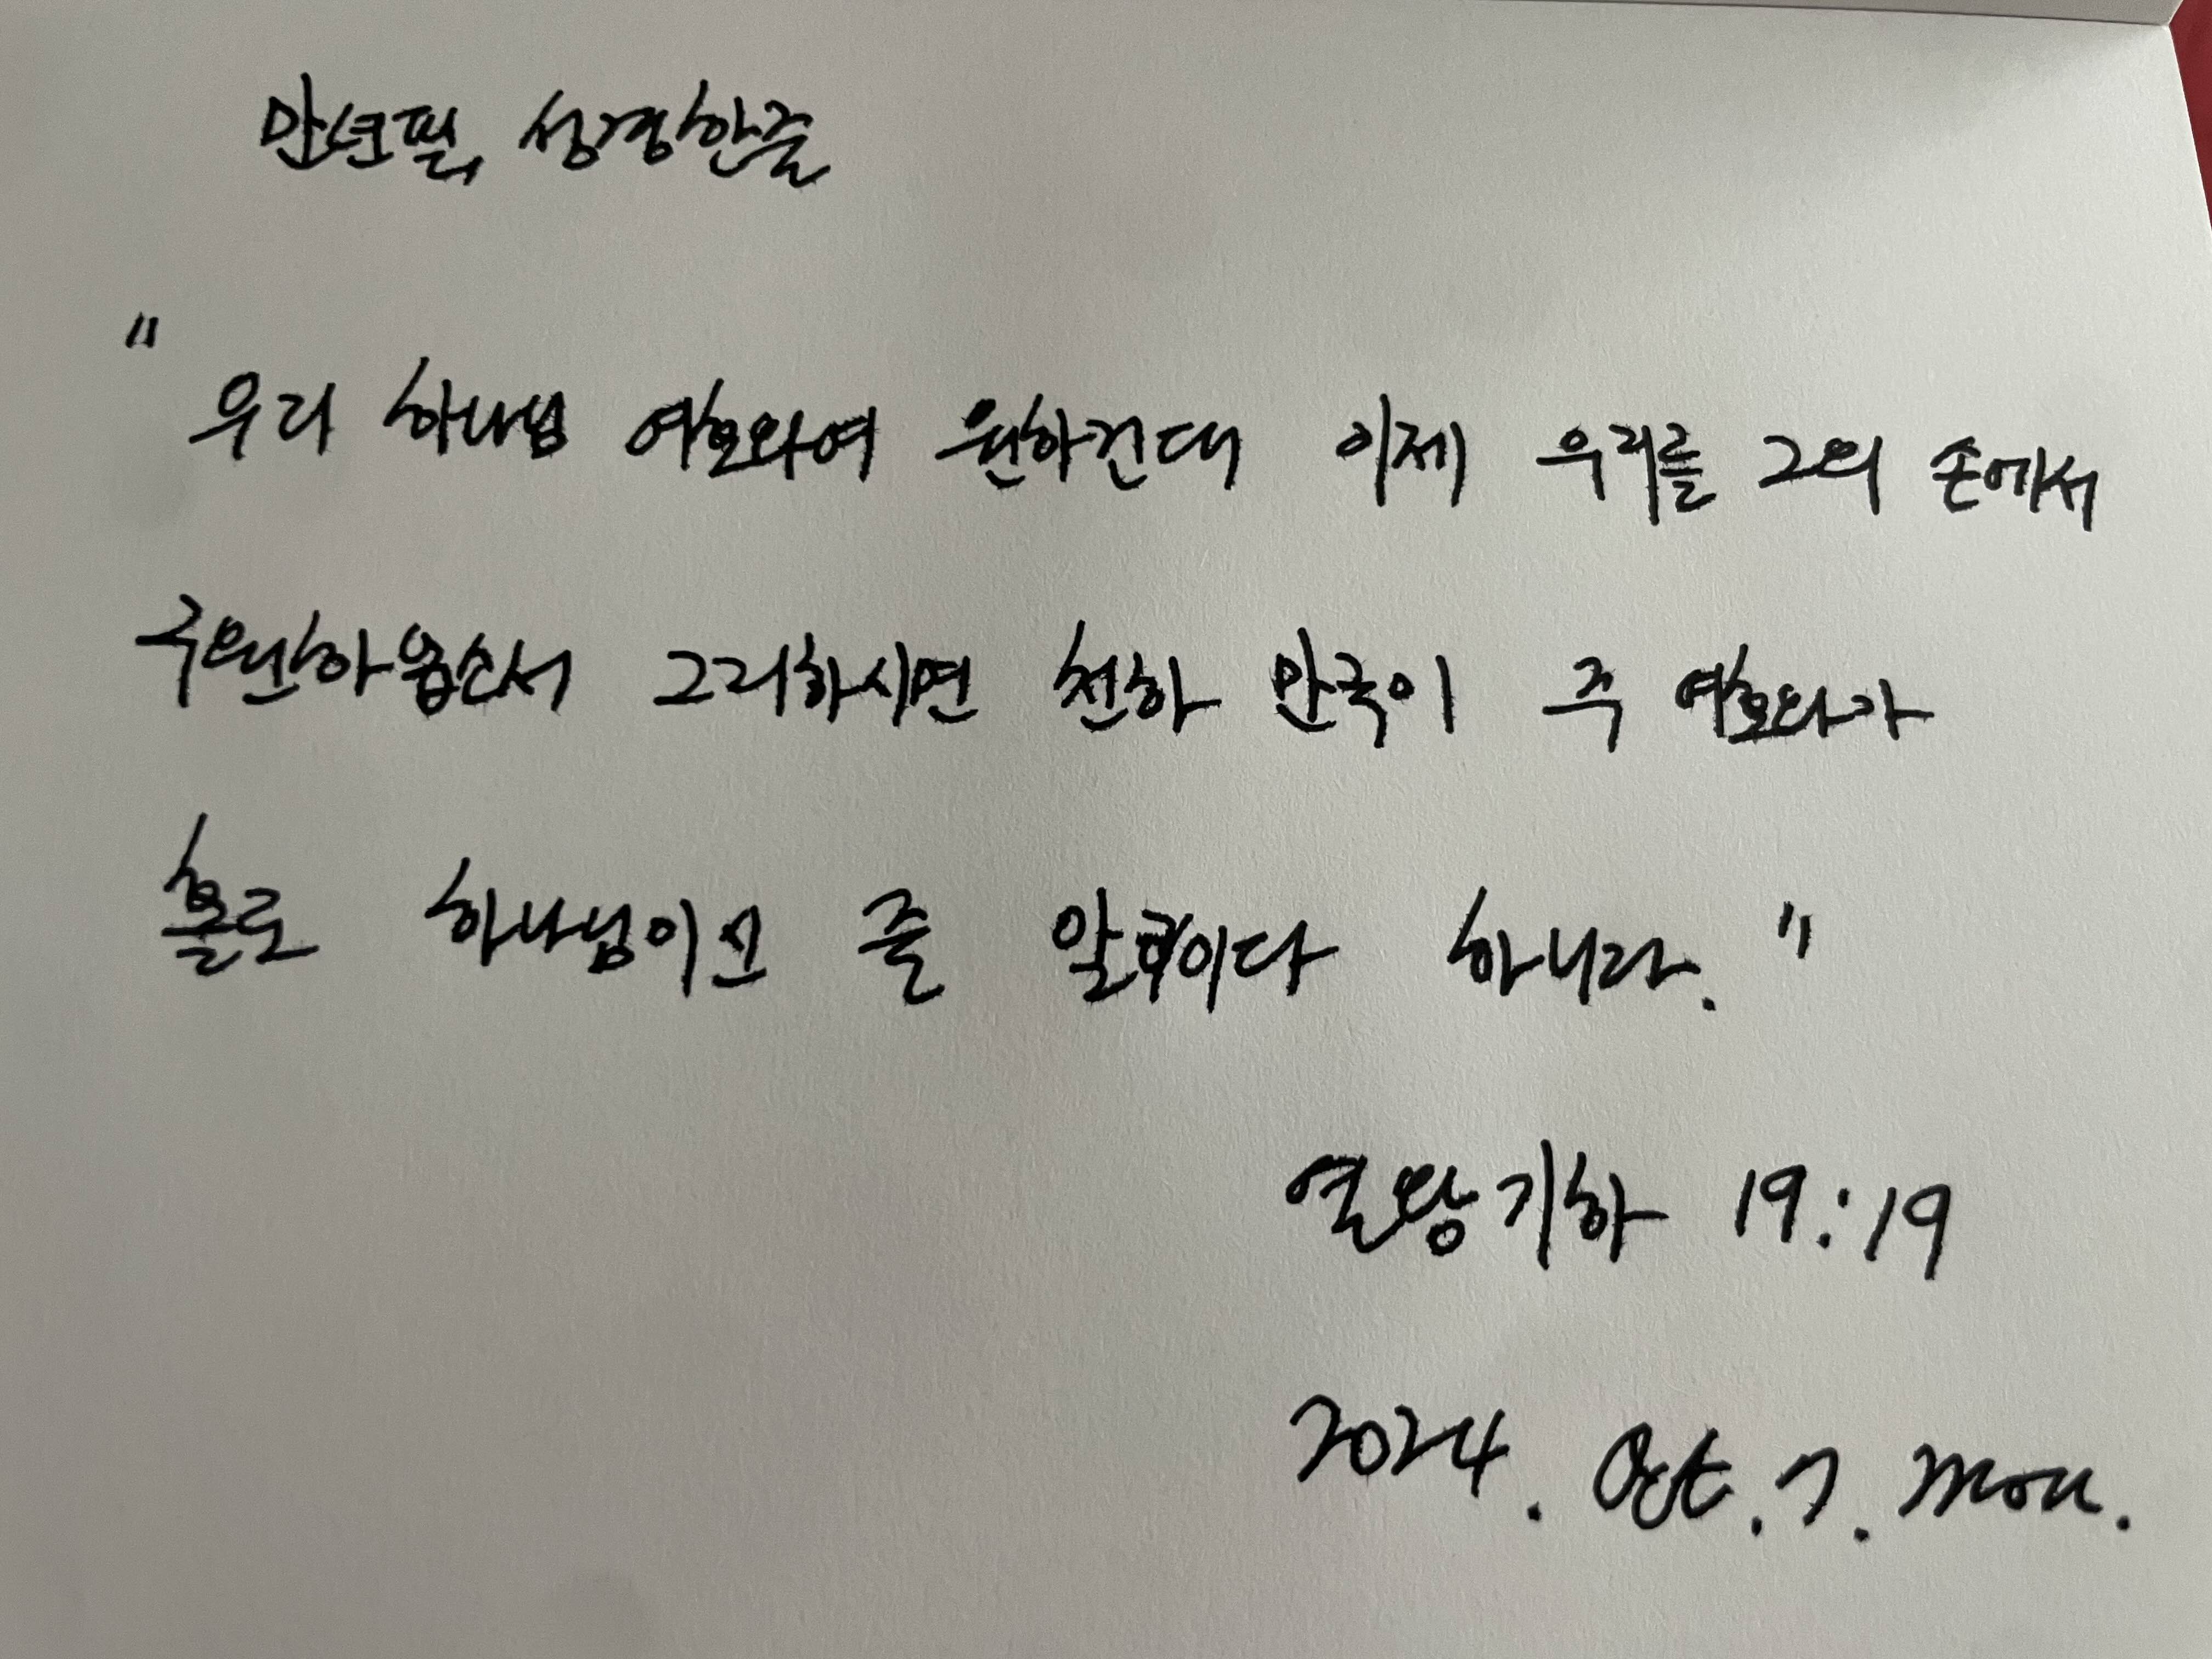 만년필, 성경한줄
"
우리 하나님 여호와여 원하건대 이제 우리를 그의 손에서
구원하옵소서 그리하시면 천하 만국이 주 여호와가
홀로 하나님이신 줄 알리이다 하니라."
열왕기하 19:19
2024. Oct. 7. Mon.